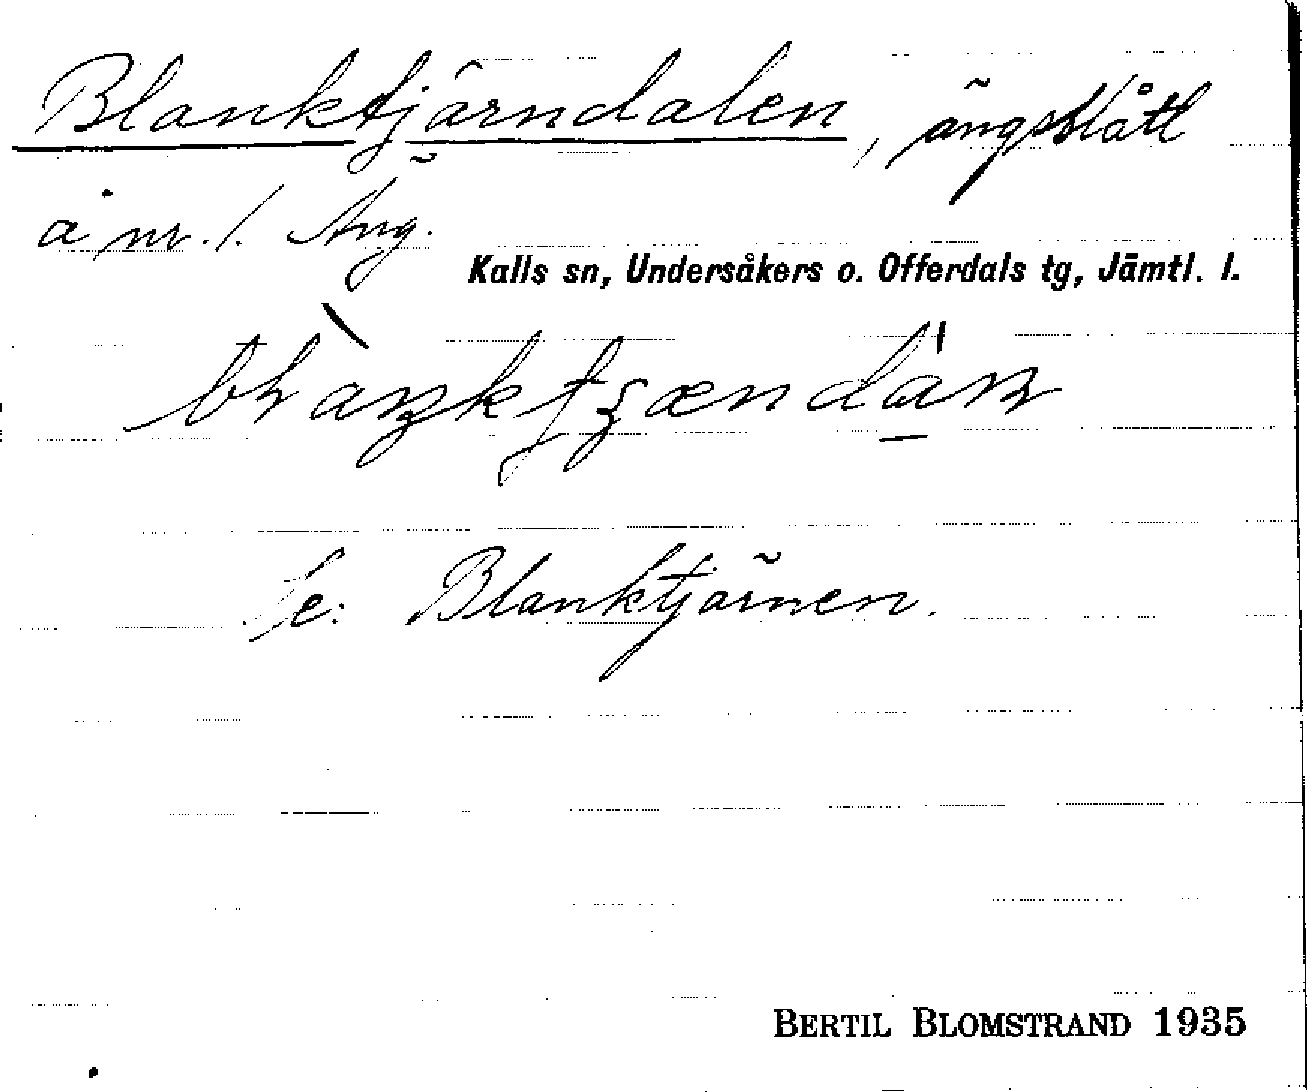 Blanktjärndalen, ängsslått
å nr. 1. Äng.
Kalls sn, Undersåkers o. Offerdals tg, Jämtl. l.
Se: Blanktjärnen.
BERTIL BLOMSTRAND 1935